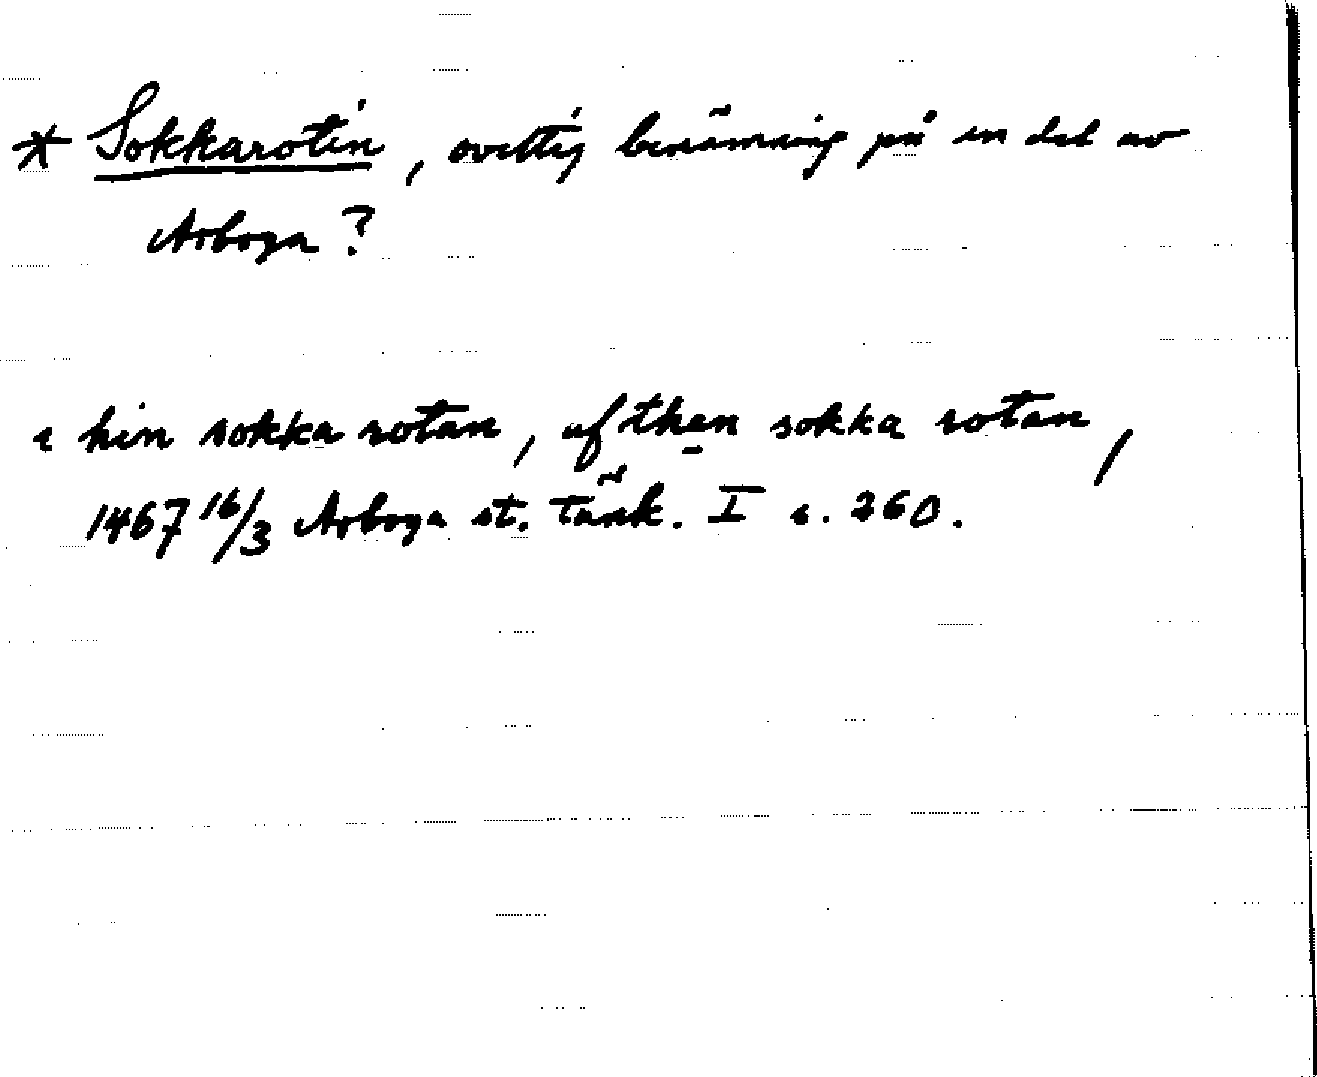 * Sokkarotin, ovettig benämning på en del av
Arboga?
i hin sokka rotan, af then sokka rotan,
1467 16/3 Arboga st. tänk. I s. 260.